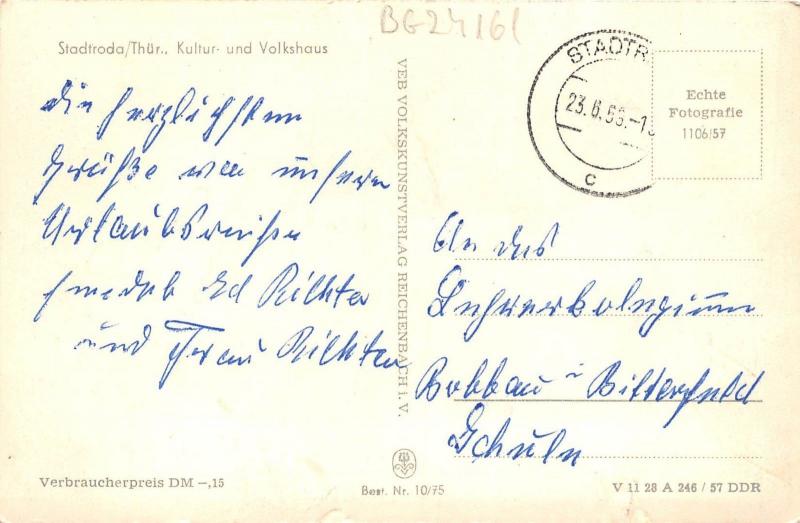 BG24161
Stadtroda/Thür., Kultur- und Volkshaus
die herzlichsten
Grüße von unserer
Urlaubsreise
sendet Ed Richter
und Frau Richter
VEB VOLKSKUNSTVERLAG REICHENBACH i. V.
STADTR
23.6.
c
Echte
Fotografie
1106/57
An das
Lehrerkolegium
Bobbau i Bitterfeld
Schule
Verbraucherpreis DM -,15
Best. Nr. 10/75
V 11 28 A 246 / 57 DDR